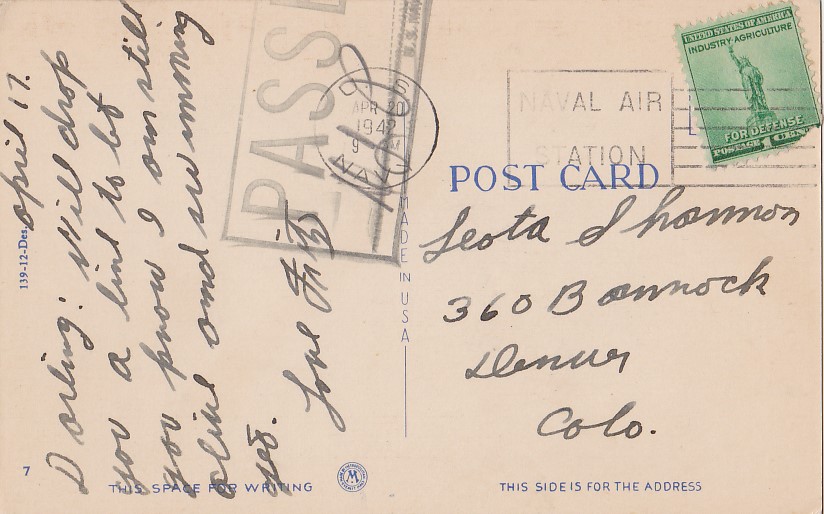 April 17.
Darling: Will drop
you a line to let
you know I am still
alive and swimming
yes.
Love Fritz
139-12-Des.
7
THIS SPACE FOR WRITING
MADE IN USA
PASSE
U.S.
APR 20
1942
9 M
NAVY
NAVAL AIR
STATION
UNITED STATES OF AMERICA
INDUSTRY-AGRICULTURE
FOR DEFENSE
POSTAGE 1 CENT
POST CARD
Leota Shannon
360 Bannock
Denver
Colo.
THIS SIDE IS FOR THE ADDRESS